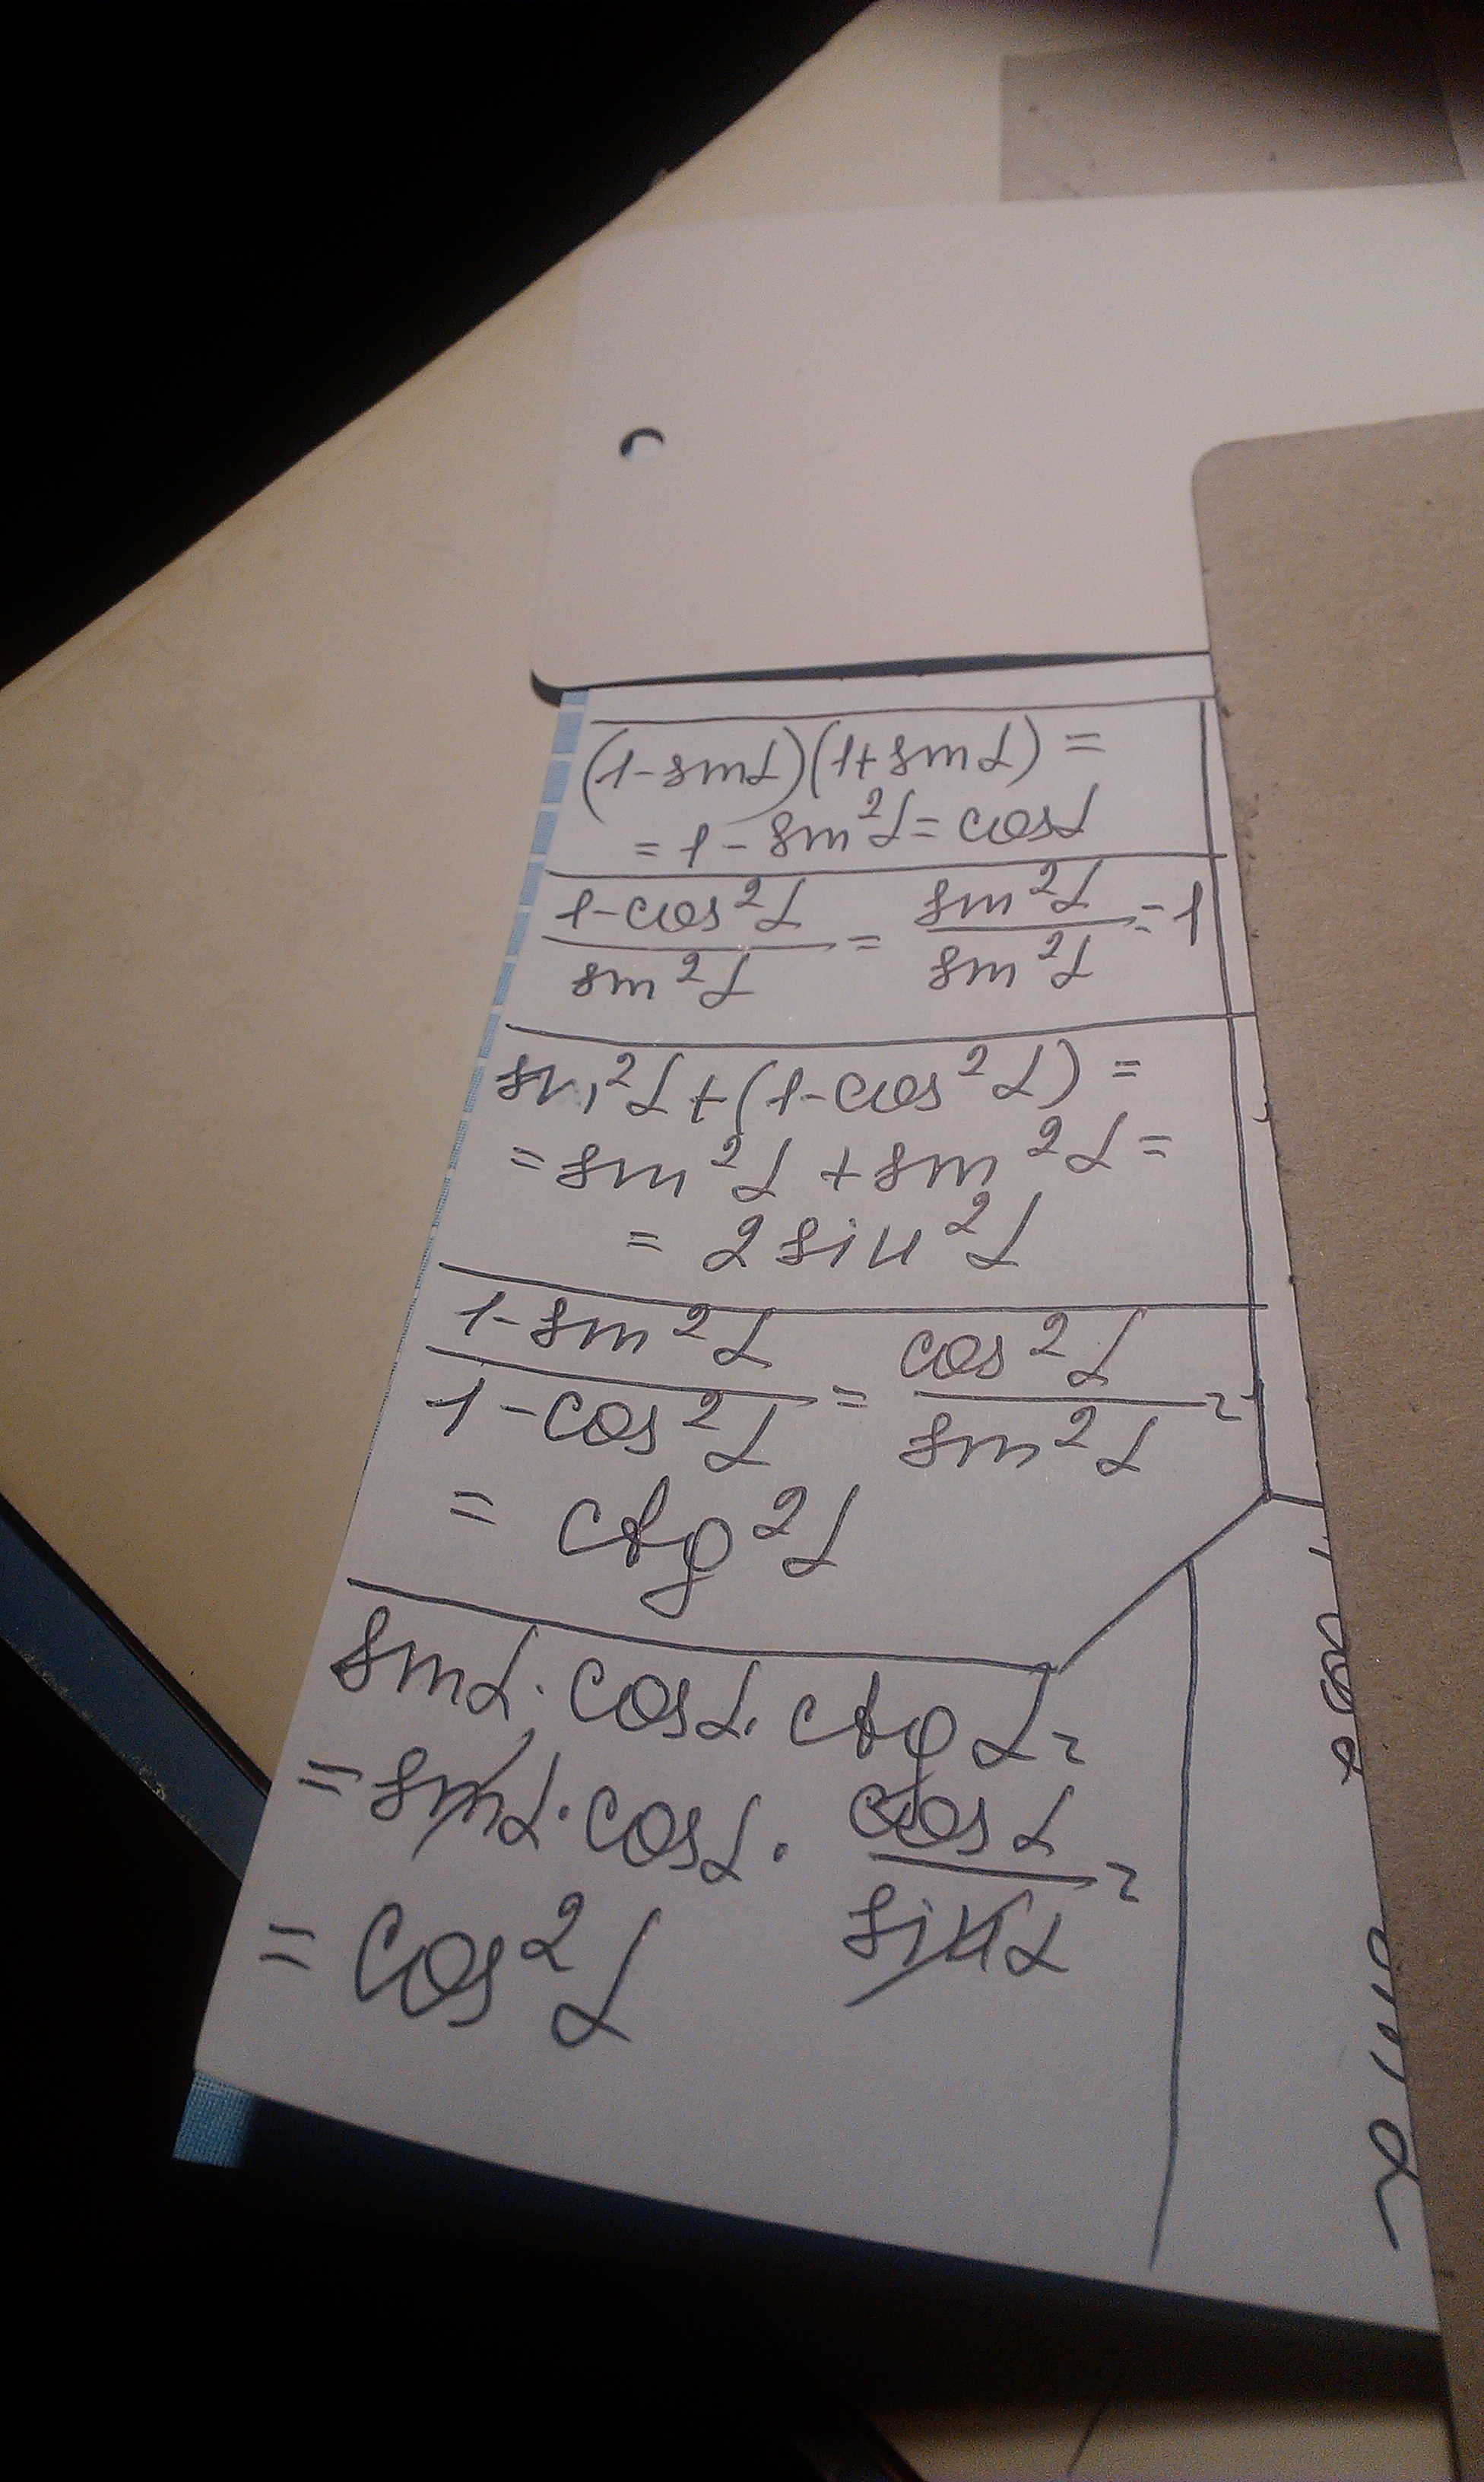 (1-sinα)(1+sinα) =
= 1 - sin²α = cosα
1-cos²α / sin²α = sin²α / sin²α = 1
sin²α + (1-cos²α) =
= sin²α + sin²α =
= 2 sin²α
1-sin²α / 1-cos²α = cos²α / sin²α =
= ctg²α
sinα · cosα · ctgα =
= sinα · cosα · cosα / sinα =
= cos²α